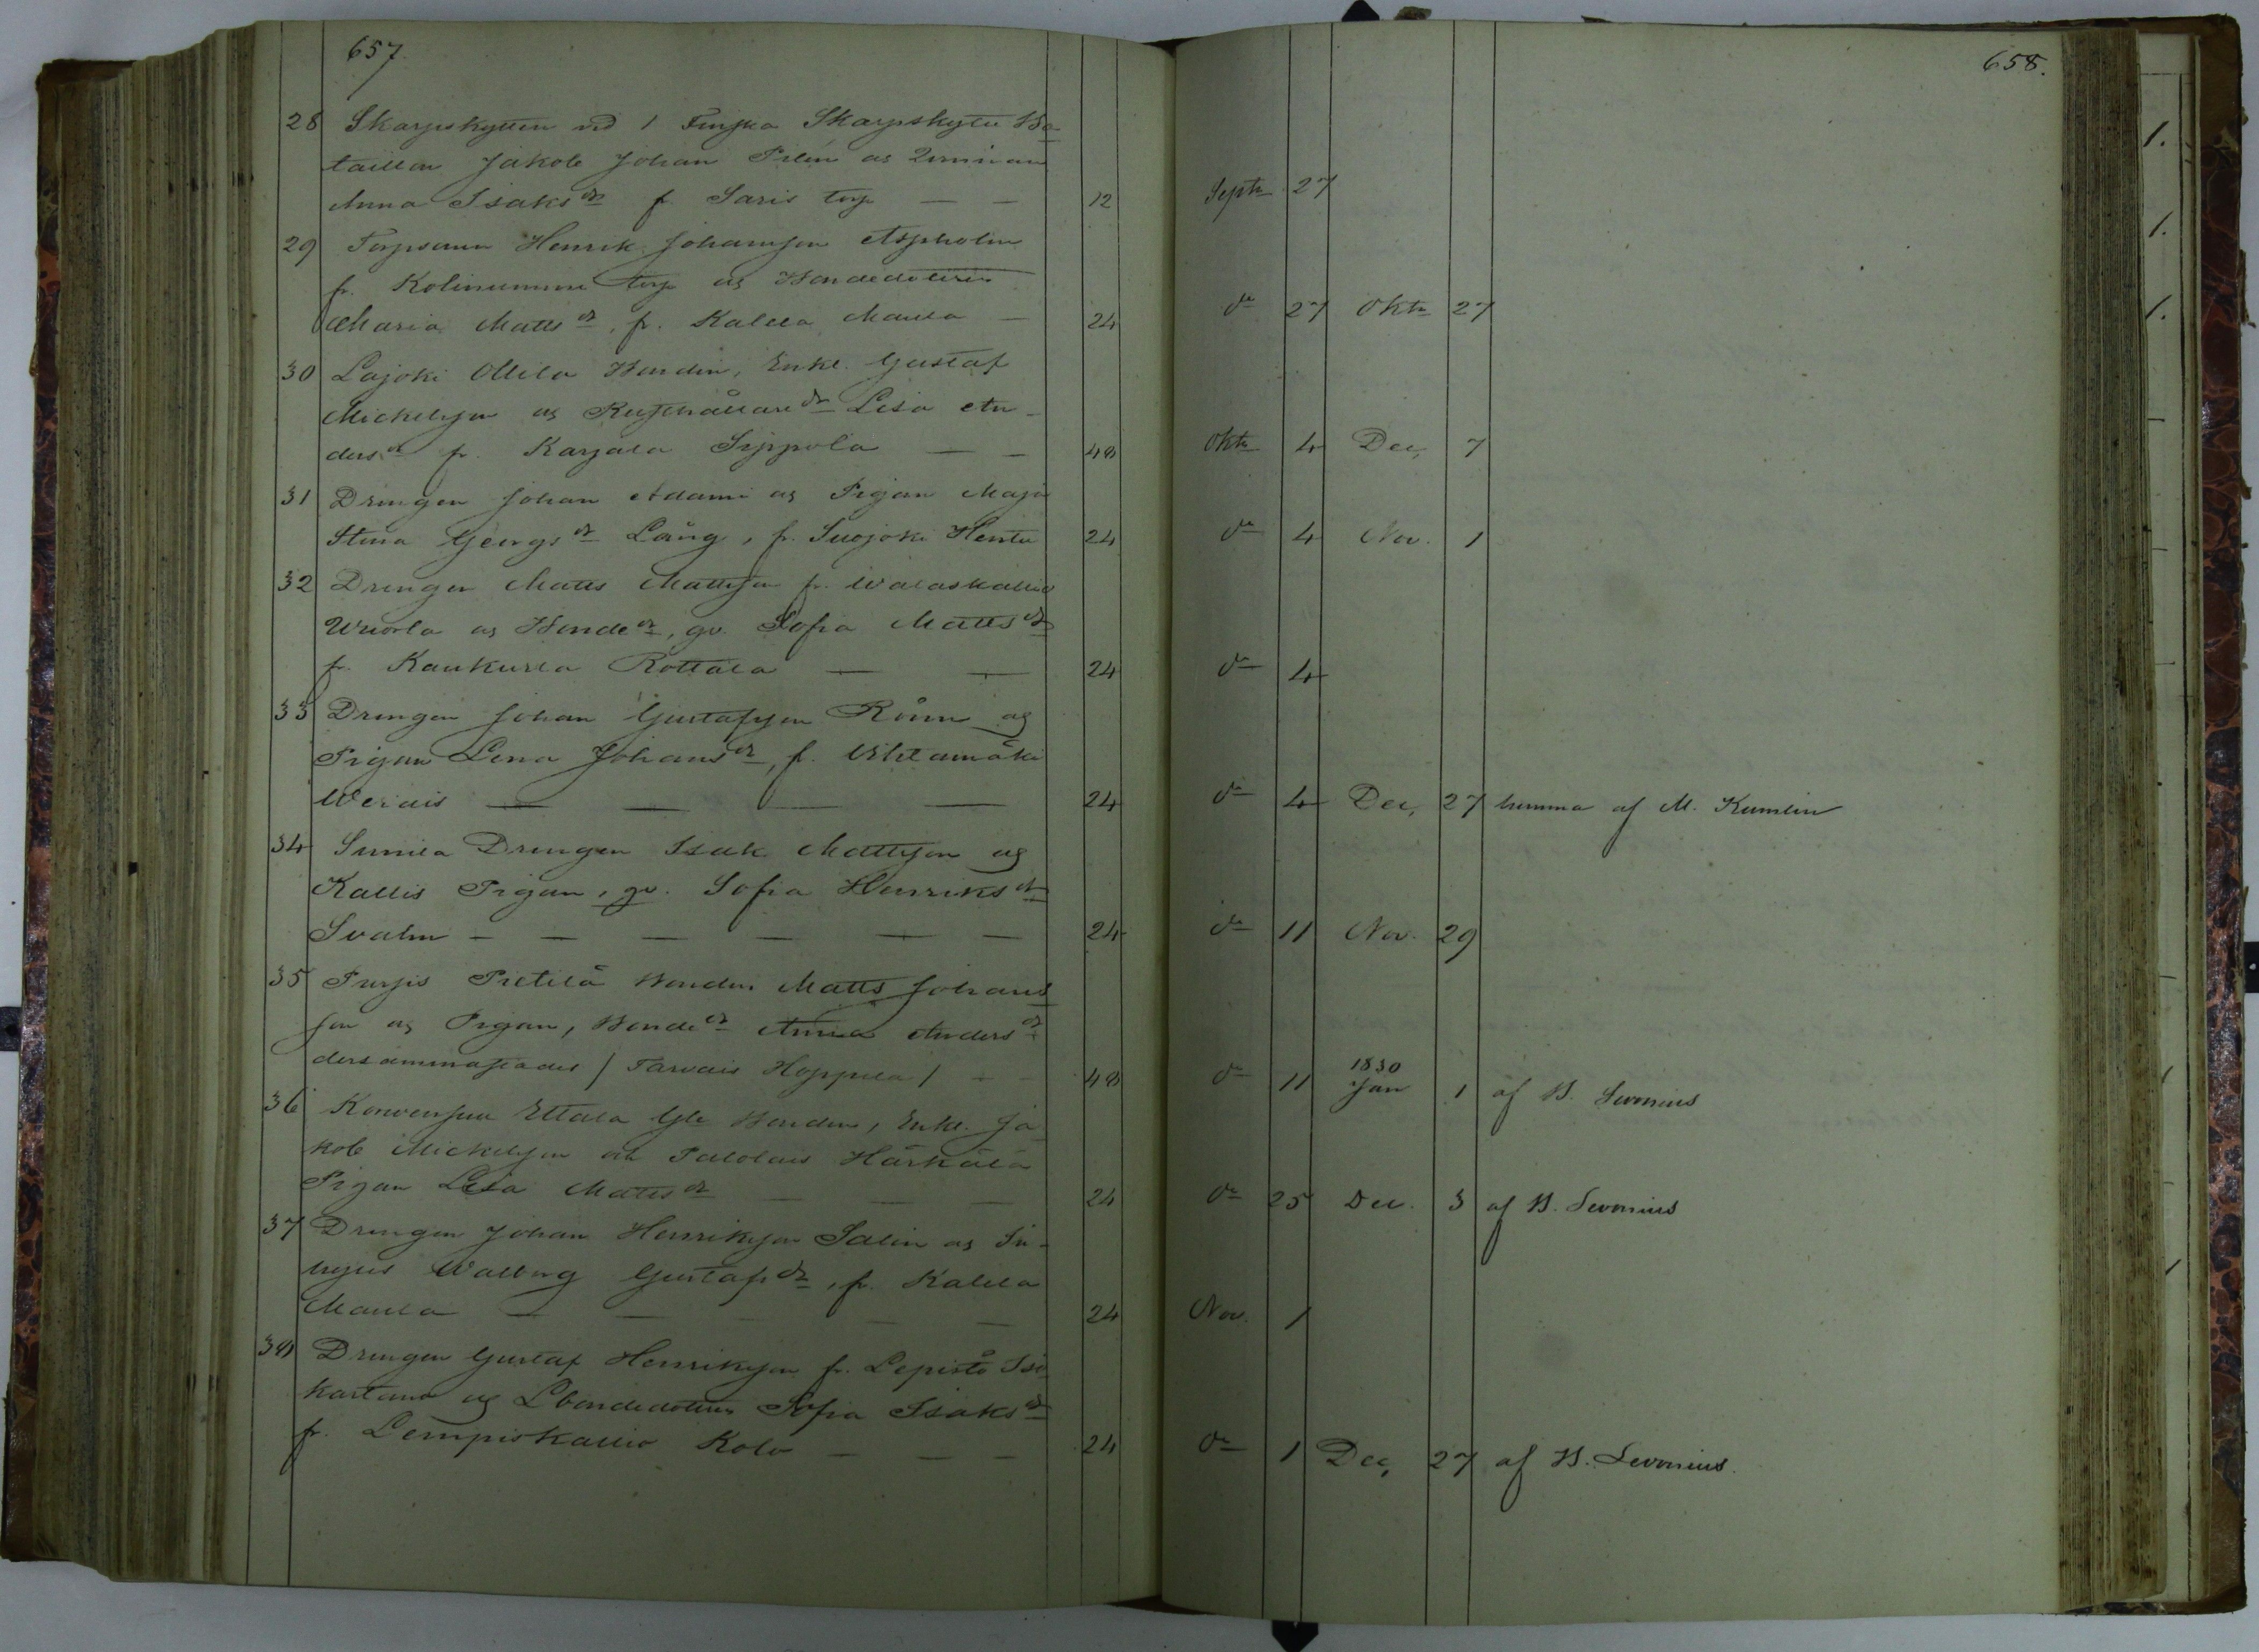 657.
28 Skarpskytten vid 1 Finska Skarpskytte Ba-
taillon Jakob Johan Pilén och Qvinnan
Anna Isaksdr fr. Saris torp — — 12 Septr 27
29 Torpsonen Henrik Johansson Aspholm
fr. Kolinummi torp och Bondedottren
Maria Mattsdr, fr. Kallela Maula — 24 do 27 Oktr 27
30 Lajoki Ollila Bonden, Enkl. Gustaf
Mickelsson och Rusthållaredr Lisa An-
dersdr fr. Karjala Sippola — — 48 Oktr 4 Dec. 7
31 Drengen Johan Adami och Pigan Maja
Stina Georgsdr Lång, fr. Suojoki Hentu 24 do 4 Nov. 1
32 Drengen Matts Mattsson fr. Walaskallio
Uriorla och Bondedr, gv. Sofia Mattsdr
fr. Kankurla Rottala — — 24 do 4
33 Drengen Johan Gustafsson Rönn och
Pigan Lena Johansdr, fr. Uhtamäki
Werais — — — — 24 do 4 Dec. 27 hemma af M. Kumlin
34 Sunila Drengen Isak Mattsson och
Kallis Pigan, gv. Sofia Henriksdr
Svahn — — — — — — 24 do 11 Nov. 29
35 Pursis Pietilä Bonden Matts Johans-
son och Pigan, Bondedr Anna Andersdr
dersammastädes / Tarvais Hoppula / — 48 do 11 1830 Jan 1 af B. Levonius
36 Korvensuu Ettala Gle Bonden, Enkl. Ja-
kob Mickelsson och Pallolais Härkälä
Pigan Lisa Mattsdr — — — 24 do 25 Dec. 3 af B. Levonius
37 Drengen Johan Henriksson Salin och In-
hyses Walborg Gustafsdr, fr. Kallela
Maula — — — — — 24 Nov. 1
38 Drengen Gustaf Henriksson fr. Lepistö Iso-
kartano och Lbondedottren Sofia Isaksdr
fr. Lempiskallio Kolo — — — 24 do 1 Dec. 27 af B. Levonius.
658.